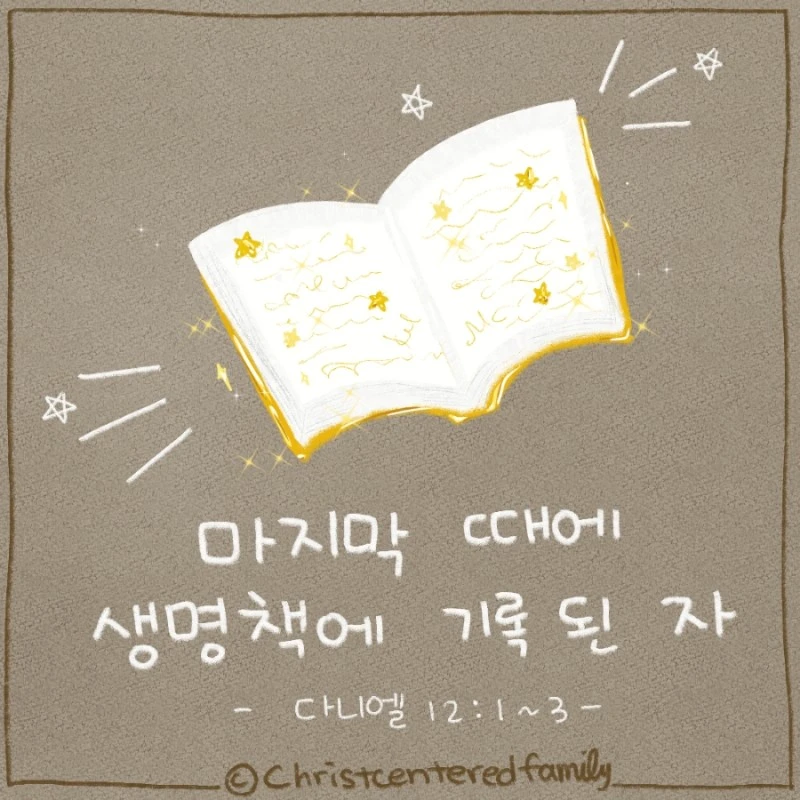 마지막 때에
생명책에 기록된 자
- 다니엘 12:1~3 -
©Christcenteredfamily